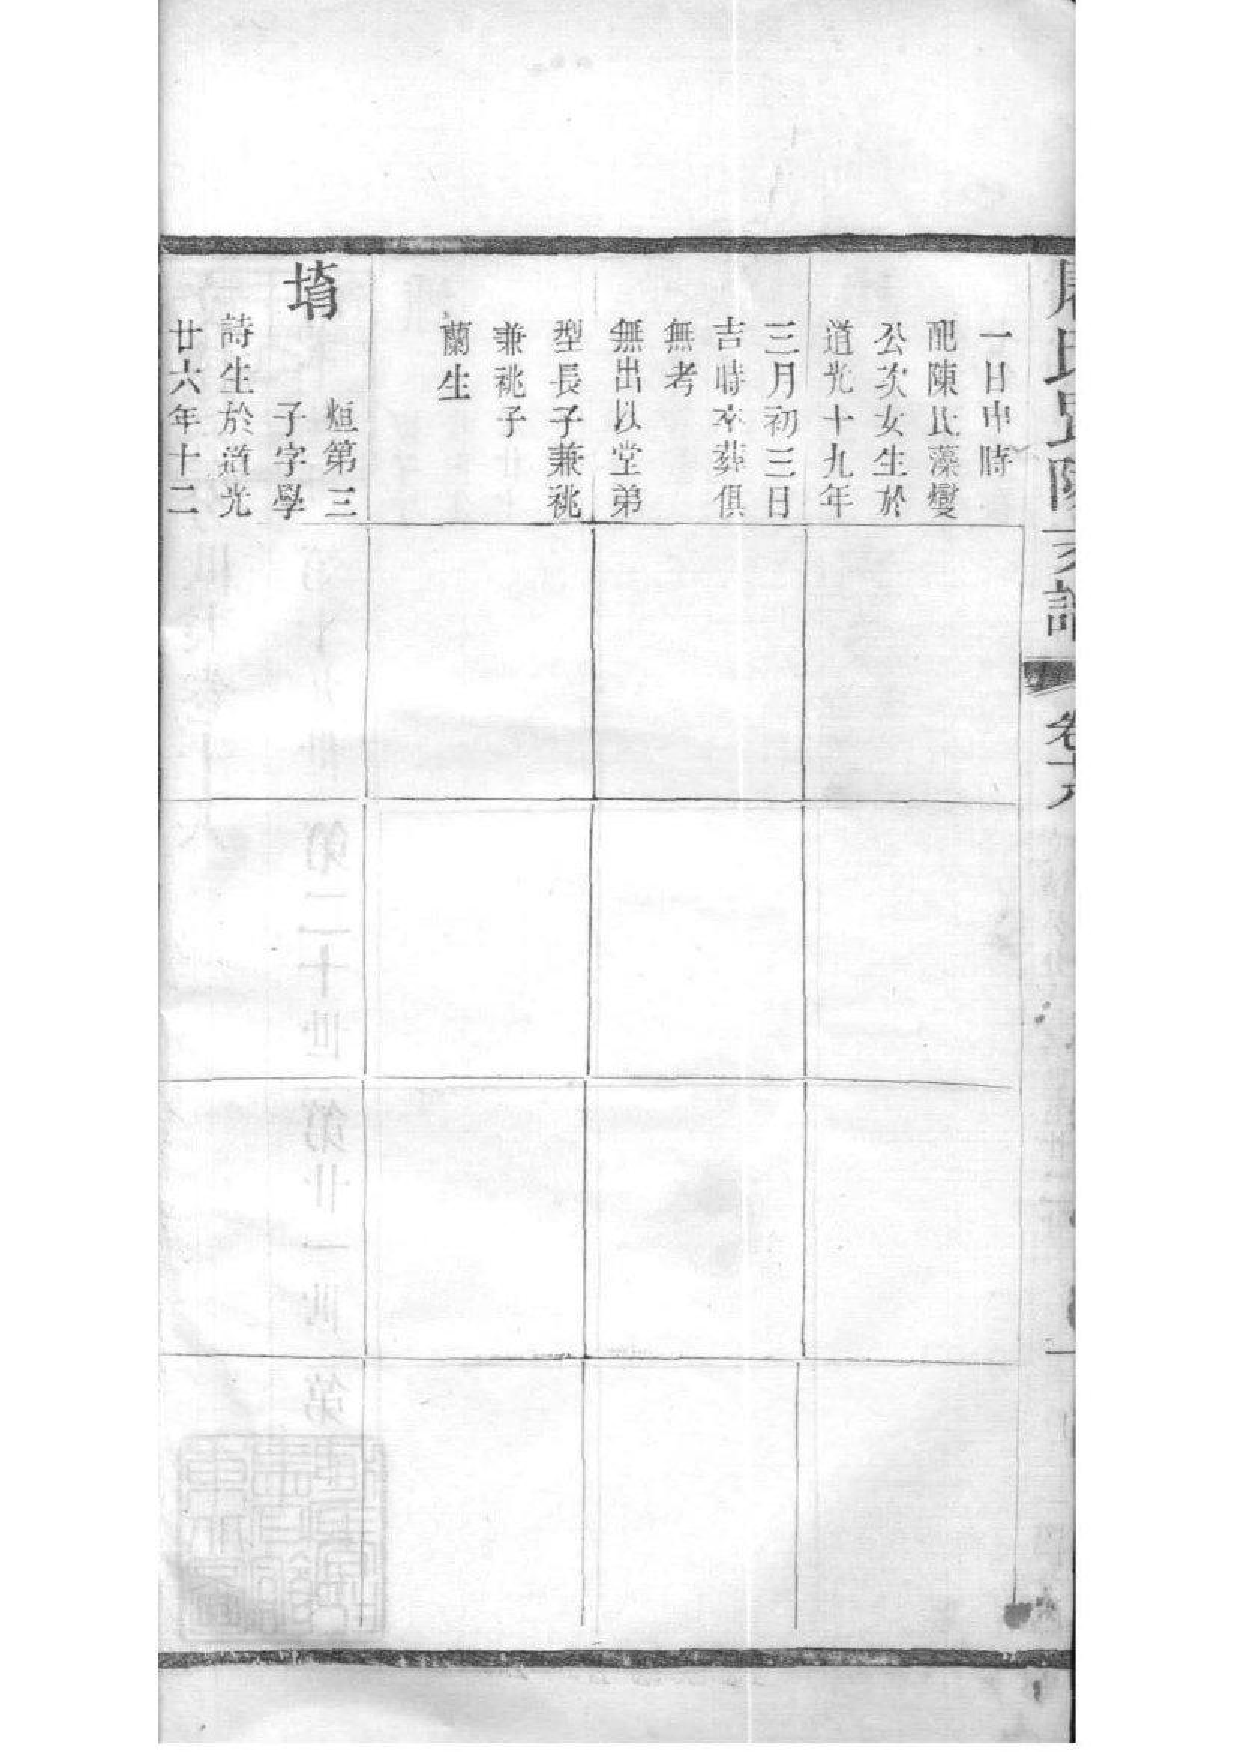 氏毘陵支譜
卷十六
一日申時
配陳氏藻燮
公次女生於
道光十九年
三月初三日
吉時卒葬俱
無考
無出以堂弟
型長子兼祧
兼祧子
蘭生
堉
烜第三
子字學
詩生於道光
廿六年十二